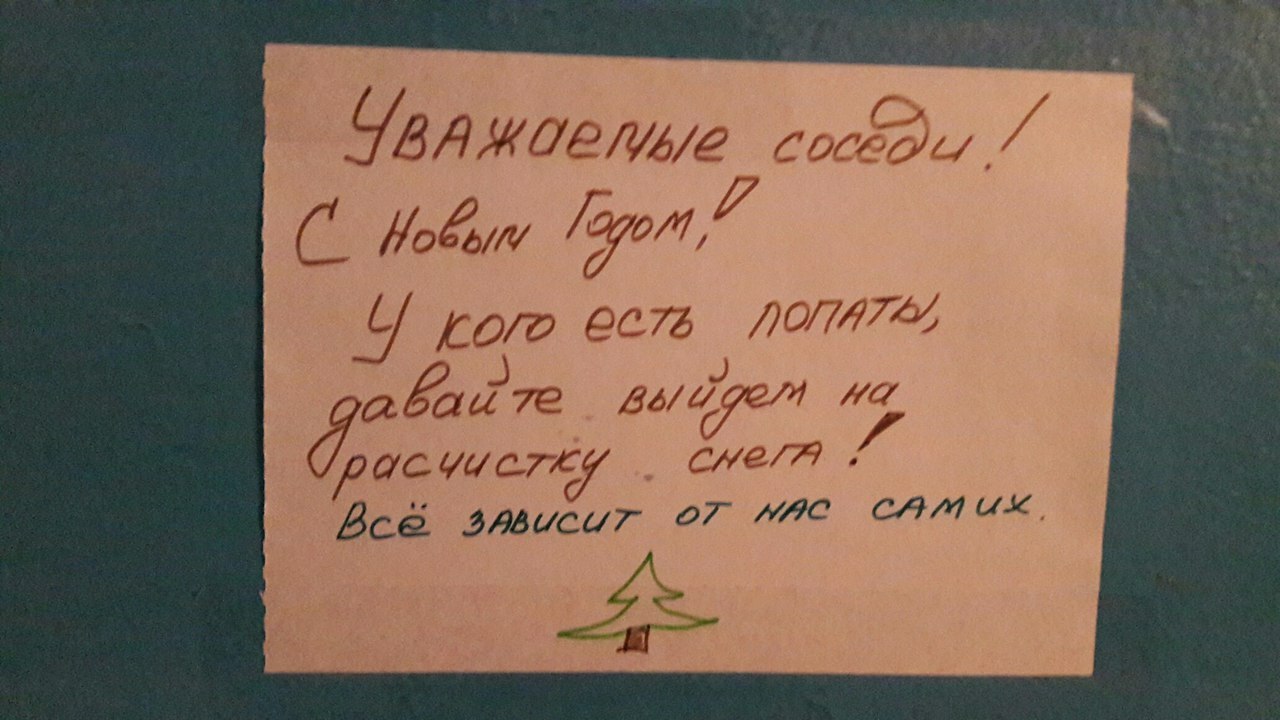 Уважаемые соседи!
С Новым Годом!
У кого есть лопаты,
давайте выйдем на
расчистку снега!
Всё зависит от нас самих.